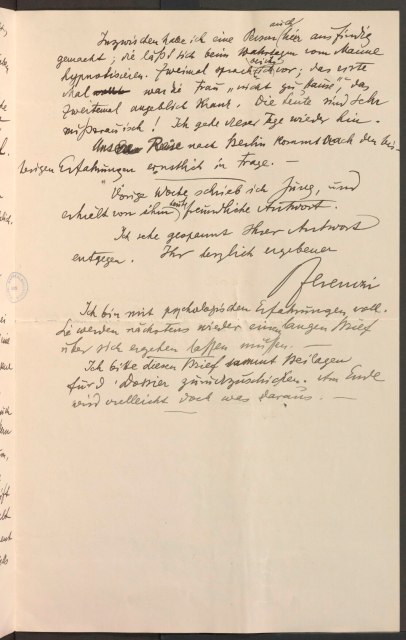 Inzwischen habe ich eine Person auch hier ausfindig
gemacht; die läßt sich beim Wahrsagen vom Manne
hypnotisieren. Zweimal sprach ich vor; das erste
Mal war die Frau „nicht zu Hause", das
zweitemal angeblich krank. Die Leute sind sehr
mißtrauisch! Ich gehe dieser Tage wieder hin.
Reise nach Berlin kommt nach den bis-
herigen Erfahrungen ernstlich in Frage. —
Vorige Woche schrieb ich Jung, und
erhielt von ihm heute freundliche Antwort.
Ich sehe gespannt Ihrer Antwort
entgegen. Ihr herzlich ergebener
Ferenczi
Ich bin mit psychologischen Erfahrungen voll.
Sie werden nächstens wieder einen langen Brief
über sich ergehen lassen müssen. —
Ich bitte diesen Brief sammt Beilagen
für d. Dossier zurückzuschicken. Am Ende
wird vielleicht doch was daraus. —